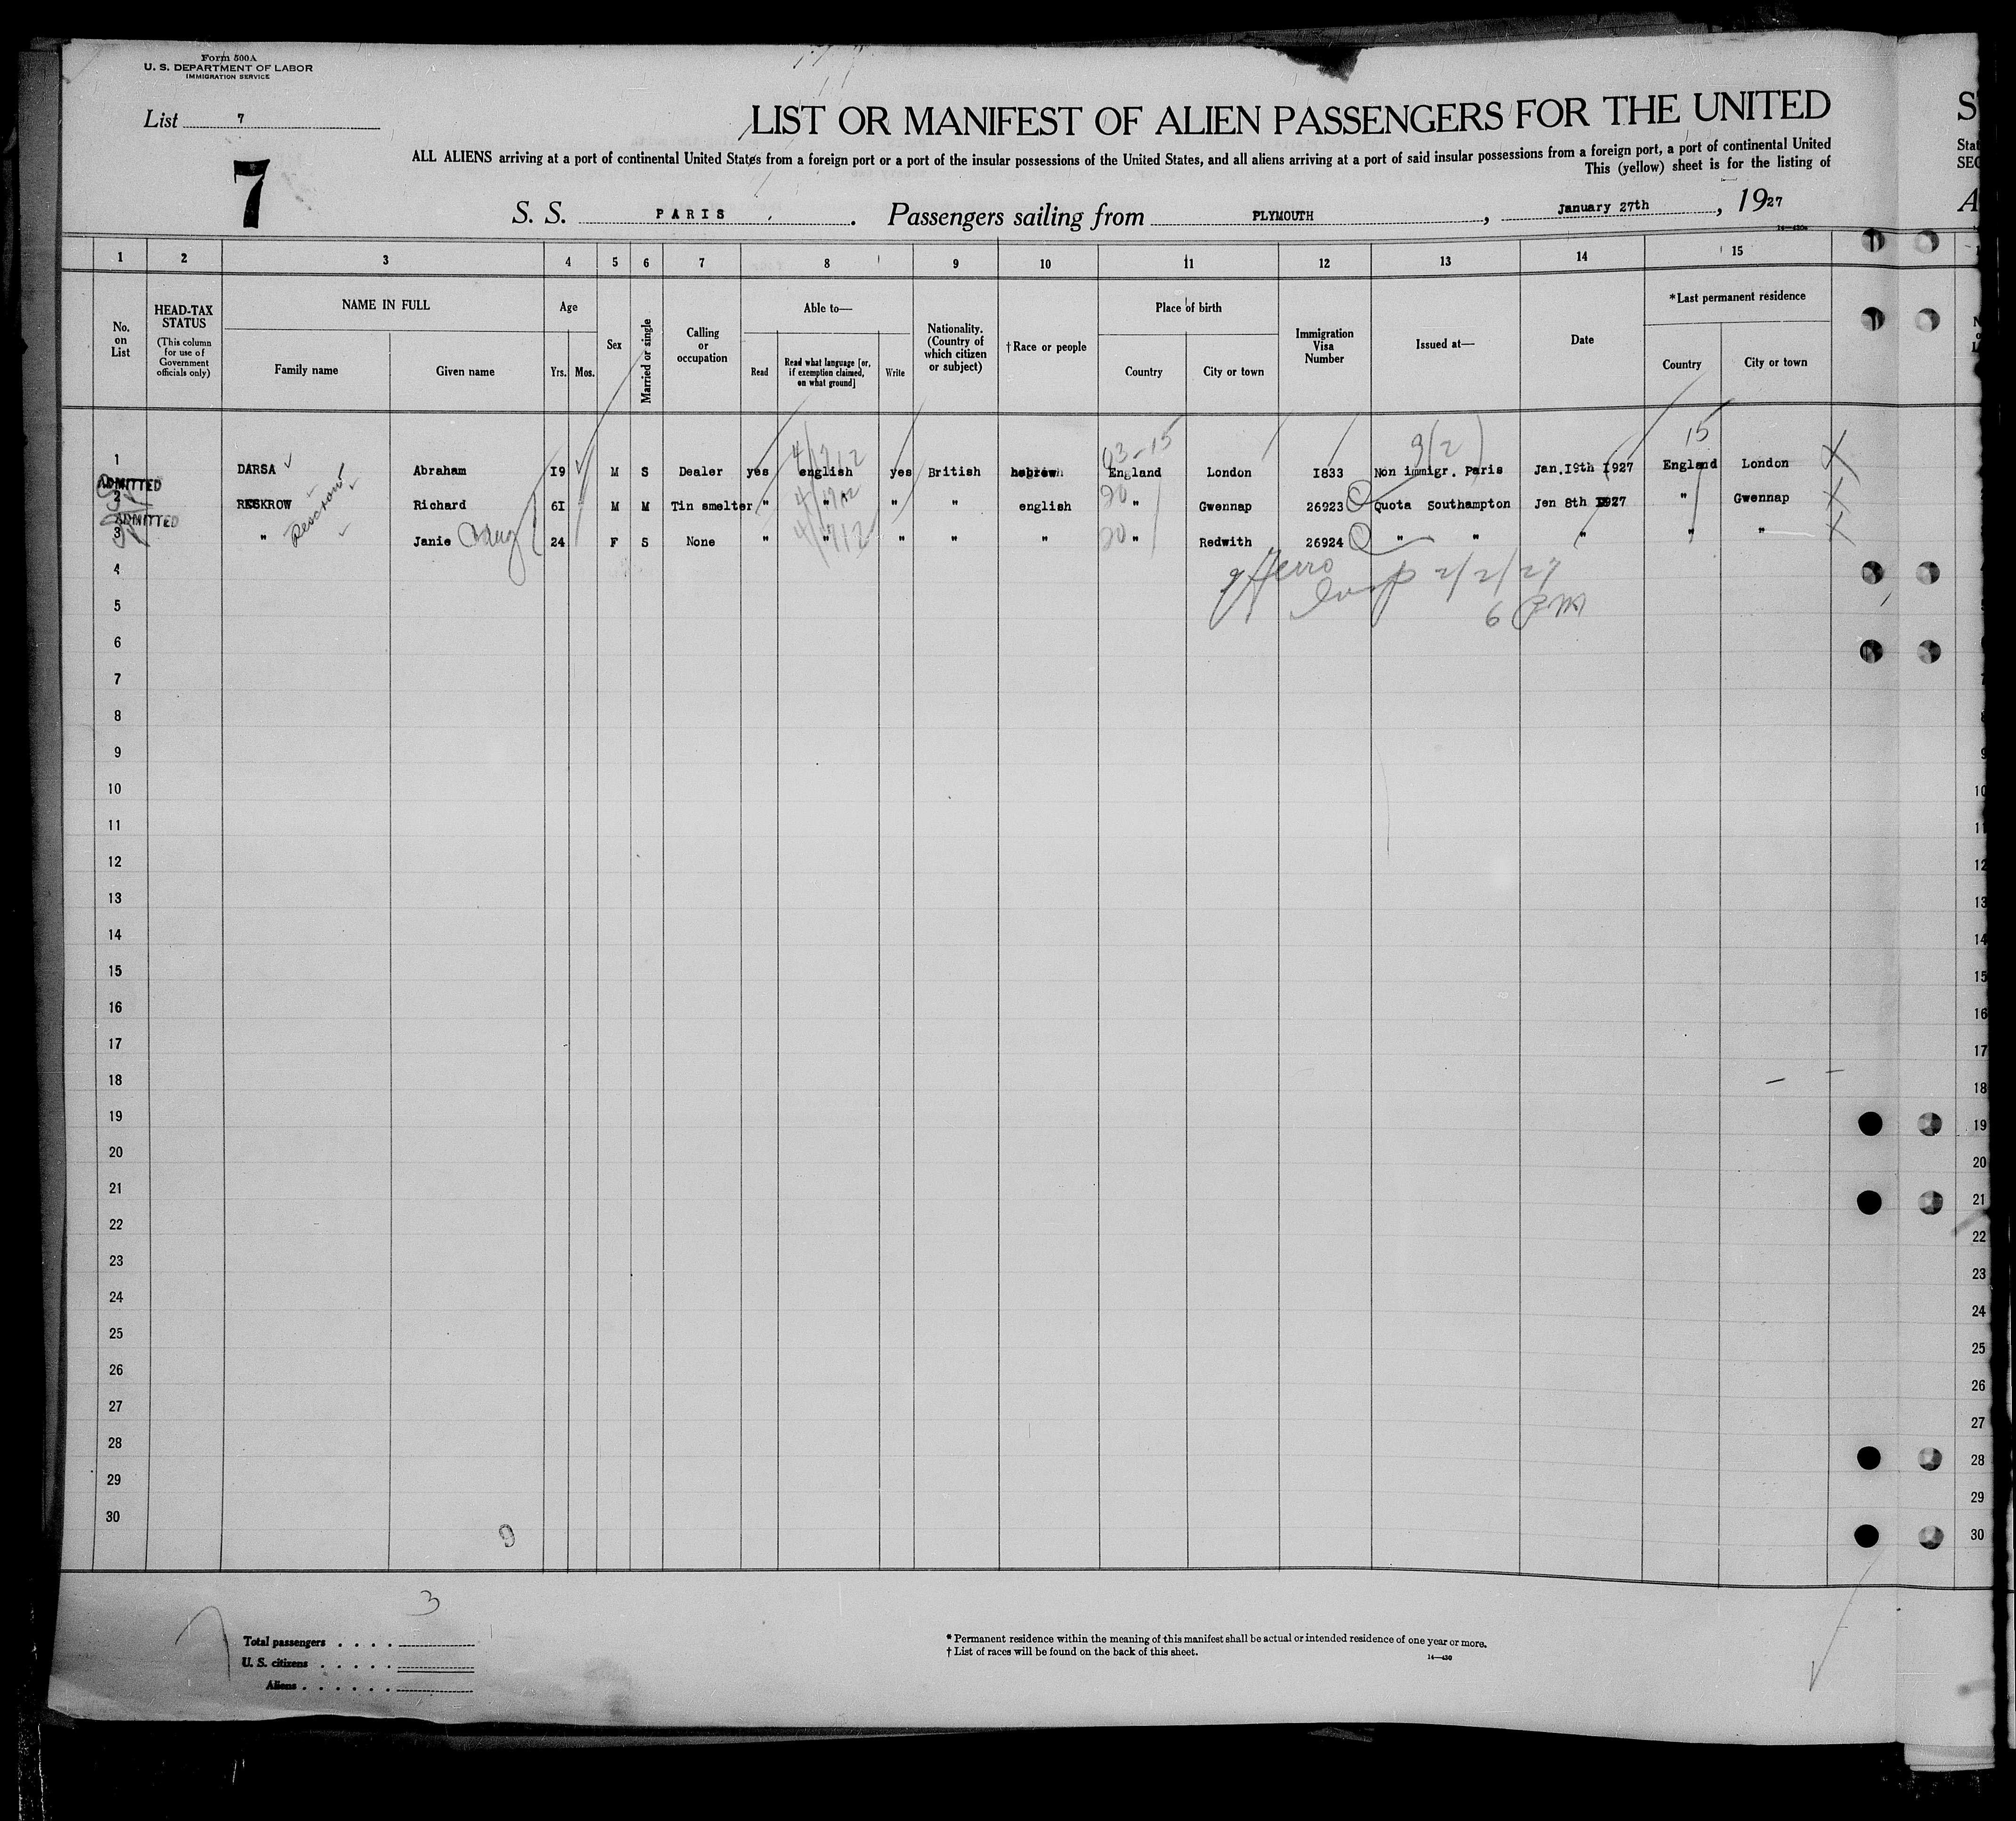 Form 500A
U. S. DEPARTMENT OF LABOR
IMMIGRATION SERVICE
List 7
7
LIST OR MANIFEST OF ALIEN PASSENGERS FOR THE UNITED
ALL ALIENS arriving at a port of continental United States from a foreign port or a port of the insular possessions of the United States, and all aliens arriving at a port of said insular possessions from a foreign port, a port of continental United
This (yellow) sheet is for the listing of
S. S. PARIS. Passengers sailing from PLYMOUTH, January 27th, 1927
14—430
1 2 3 4 5 6 7 8 9 10 11 12 13 14 15
No. on List
HEAD-TAX STATUS (This column for use of Government officials only)
NAME IN FULL
Family name
Given name
Age
Yrs. Mos.
Sex
Married or single
Calling or occupation
Able to—
Read
Read what language [or, if exemption claimed, on what ground]
Write
Nationality. (Country of which citizen or subject)
† Race or people
Place of birth
Country
City or town
Immigration Visa Number
Issued at—
Date
* Last permanent residence
Country
City or town
03-15
15
1 DARSA Abraham I9 M S Dealer yes english yes British hebrew England London I833 Non immigr. Paris Jan.I9th I927 England London
ADMITTED
2 RESKROW Richard 6I M M Tin smelter " " " " english " Gwennap 26923 Quota Southampton Jen 8th I927 " Gwennap
Rescrow
ADMITTED
3 " Janie 24 F S None " " " " " " Redwith 26924 " " " " "
2/2/27
6 PM
4
5
6
7
8
9
10
11
12
13
14
15
16
17
18
19
20
21
22
23
24
25
26
27
28
29
30
9
3
Total passengers . . . .
U. S. citizens . . . . .
Aliens . . . . . .
* Permanent residence within the meaning of this manifest shall be actual or intended residence of one year or more.
† List of races will be found on the back of this sheet.
14—430